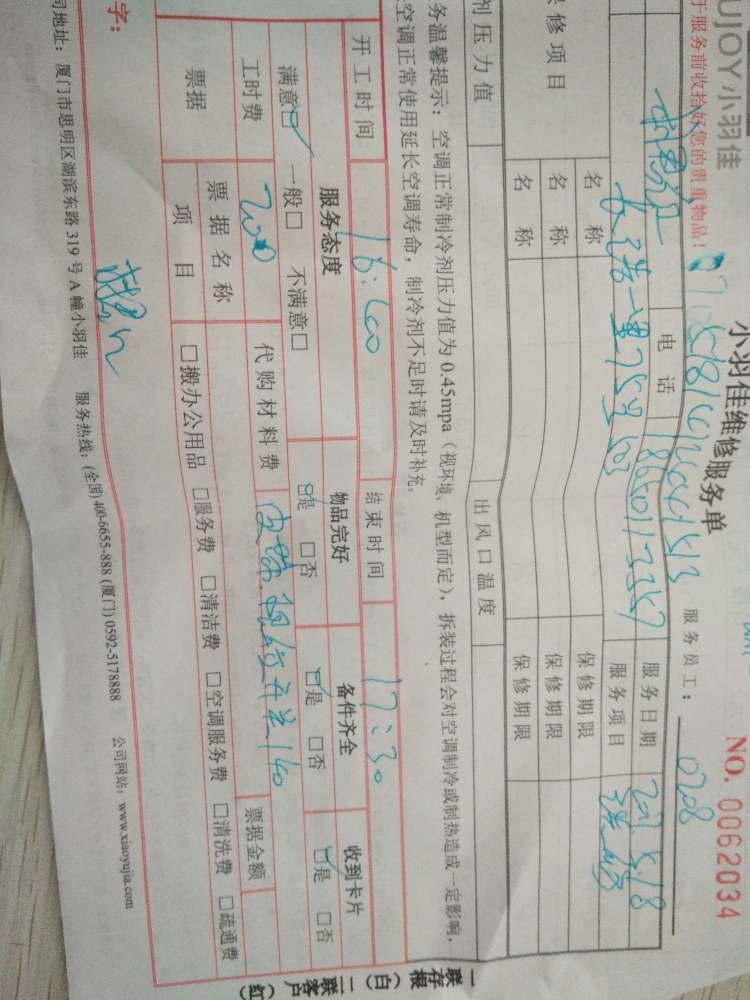 UJOY小羽佳
小羽佳维修服务单
NO. 0062034
于服务前收拾好您的贵重物品!
服务员工: 0208
电话
服务日期
保修项目
服务项目
名称
保修期限
名称
保修期限
名称
保修期限
剂压力值
出风口温度
务温馨提示: 空调正常制冷剂压力值为 0.45mpa (视环境、机型而定), 拆装过程会对空调制冷或制热造成一定影响,
空调正常使用延长空调寿命, 制冷剂不足时请及时补充.
开工时间 16:40 结束时间 17:30
服务态度 物品完好 备件齐全 收到卡片
满意□ 一般□ 不满意□ □是 □否 □是 □否 □是 □否
工时费 200 代购材料费 140
票据 票据名称 票据金额
项目 □搬办公用品 □服务费 □清洁费 □空调服务费 □清洗费 □疏通费
字:
司地址: 厦门市思明区湖滨东路 319 号 A 幢小羽佳 服务热线: (全国)400-6655-888 (厦门) 0592-5178888 公司网站: www.xiaoyujia.com
一联存根(白) 二联客户(红)